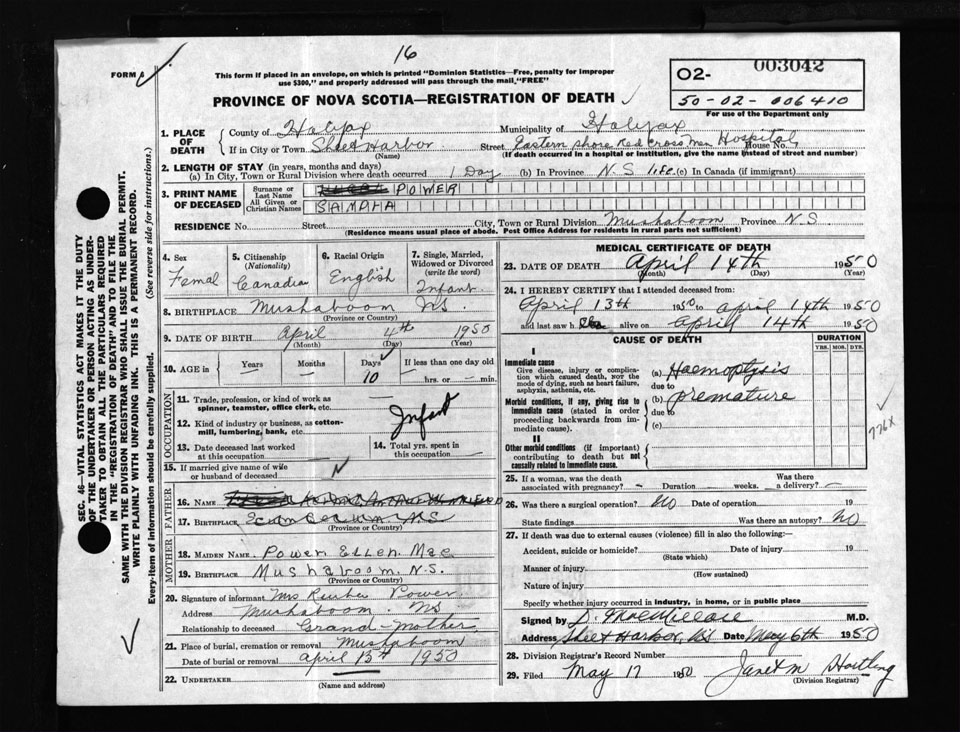 16
FORM
This form if placed in an envelope, on which is printed "Dominion Statistics—Free, penalty for improper
use $300," and properly addressed will pass through the mail, "FREE"
PROVINCE OF NOVA SCOTIA—REGISTRATION OF DEATH
O2- 003042
50-02-006410
For use of the Department only
1. PLACE OF DEATH
County of Halifax Municipality of Halifax
If in City or Town Sheet Harbor Street Eastern Shore Red Cross Mem Hospital House No.
(Name) (If death occurred in a hospital or institution, give the name instead of street and number)
2. LENGTH OF STAY (in years, months and days)
(a) In City, Town or Rural Division where death occurred 1 Day (b) In Province N.S life (c) In Canada (if immigrant)
3. PRINT NAME OF DECEASED
Surname or Last Name POWER
All Given or Christian Names
RESIDENCE No. Street City, Town or Rural Division Mushaboom Province N.S
(Residence means usual place of abode. Post Office Address for residents in rural parts not sufficient)
4. Sex
Femal
5. Citizenship (Nationality)
Canadian
6. Racial Origin
English
7. Single, Married, Widowed or Divorced (write the word)
Infant
8. BIRTHPLACE Mushaboom NS.
(Province or Country)
9. DATE OF BIRTH April 4th 1950
(Month) (Day) (Year)
10. AGE in Years Months Days If less than one day old
— — 10 — hrs. or — min.
OCCUPATION
11. Trade, profession, or kind of work as
spinner, teamster, office clerk, etc.
12. Kind of industry or business, as cotton-
mill, lumbering, bank, etc.
Infant
13. Date deceased last worked
at this occupation
14. Total yrs. spent in
this occupation
15. If married give name of wife
or husband of deceased
FATHER
16. NAME
17. BIRTHPLACE
(Province or Country)
MOTHER
18. MAIDEN NAME Power Ellen Mae
19. BIRTHPLACE Mushaboom. N.S.
(Province or Country)
20. Signature of informant Mrs Reuben Power
Address Mushaboom. NS
Relationship to deceased Grand-Mother
21. Place of burial, cremation or removal Mushaboom
Date of burial or removal April 15th 1950
22. UNDERTAKER
(Name and address)
MEDICAL CERTIFICATE OF DEATH
23. DATE OF DEATH April 14th 1950
(Month) (Day) (Year)
24. I HEREBY CERTIFY that I attended deceased from:
April 13th 1950 to April 14th 1950
and last saw h alive on April 14th 1950
CAUSE OF DEATH
DURATION
YRS. MOS. DYS.
I
Immediate cause
Give disease, injury or complica-
tion which caused death, NOT the
mode of dying, such as heart failure,
asphyxia, asthenia, etc.
(a) Haemoptysis
due to
Morbid conditions, if any, giving rise to
immediate cause (stated in order
proceeding backwards from im-
mediate cause).
(b) premature
due to
(c)
776X
II
Other morbid conditions (if important)
contributing to death but not
causally related to immediate cause.
25. If a woman, was the death
associated with pregnancy? - Duration weeks. Was there
a delivery? -
26. Was there a surgical operation? No Date of operation 19
State findings Was there an autopsy? No
27. If death was due to external causes (violence) fill in also the following:
Accident, suicide or homicide? Date of injury 19
(State which)
Manner of injury
(How sustained)
Nature of injury
Specify whether injury occurred in industry, in home, or in public place
Signed by M.D.
Address Sheet Harbor, NS Date May 6th 1950
28. Division Registrar's Record Number
29. Filed May 17 1950 Janet M Hartling
(Division Registrar)
SEC. 46—VITAL STATISTICS ACT MAKES IT THE DUTY
OF THE UNDERTAKER OR PERSON ACTING AS UNDER-
TAKER TO OBTAIN ALL THE PARTICULARS REQUIRED
IN THE "REGISTRATION OF DEATH" AND TO FILE THE
SAME WITH THE DIVISION REGISTRAR WHO SHALL ISSUE THE BURIAL PERMIT.
WRITE PLAINLY WITH UNFADING INK. THIS IS A PERMANENT RECORD.
Every item of information should be carefully supplied. (See reverse side for instructions.)